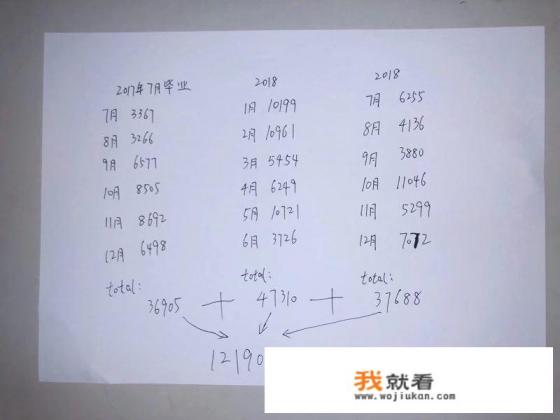 2017年7月毕业
7月 3367
8月 3266
9月 6577
10月 8505
11月 8692
12月 6498
total:
36905
2018
1月 10199
2月 10961
3月 5454
4月 6249
5月 10721
6月 3726
total:
47310
2018
7月 6255
8月 4136
9月 3880
10月 11046
11月 5299
12月 7072
total:
37688
+ +
12190
我就看
www.wojiukan.com